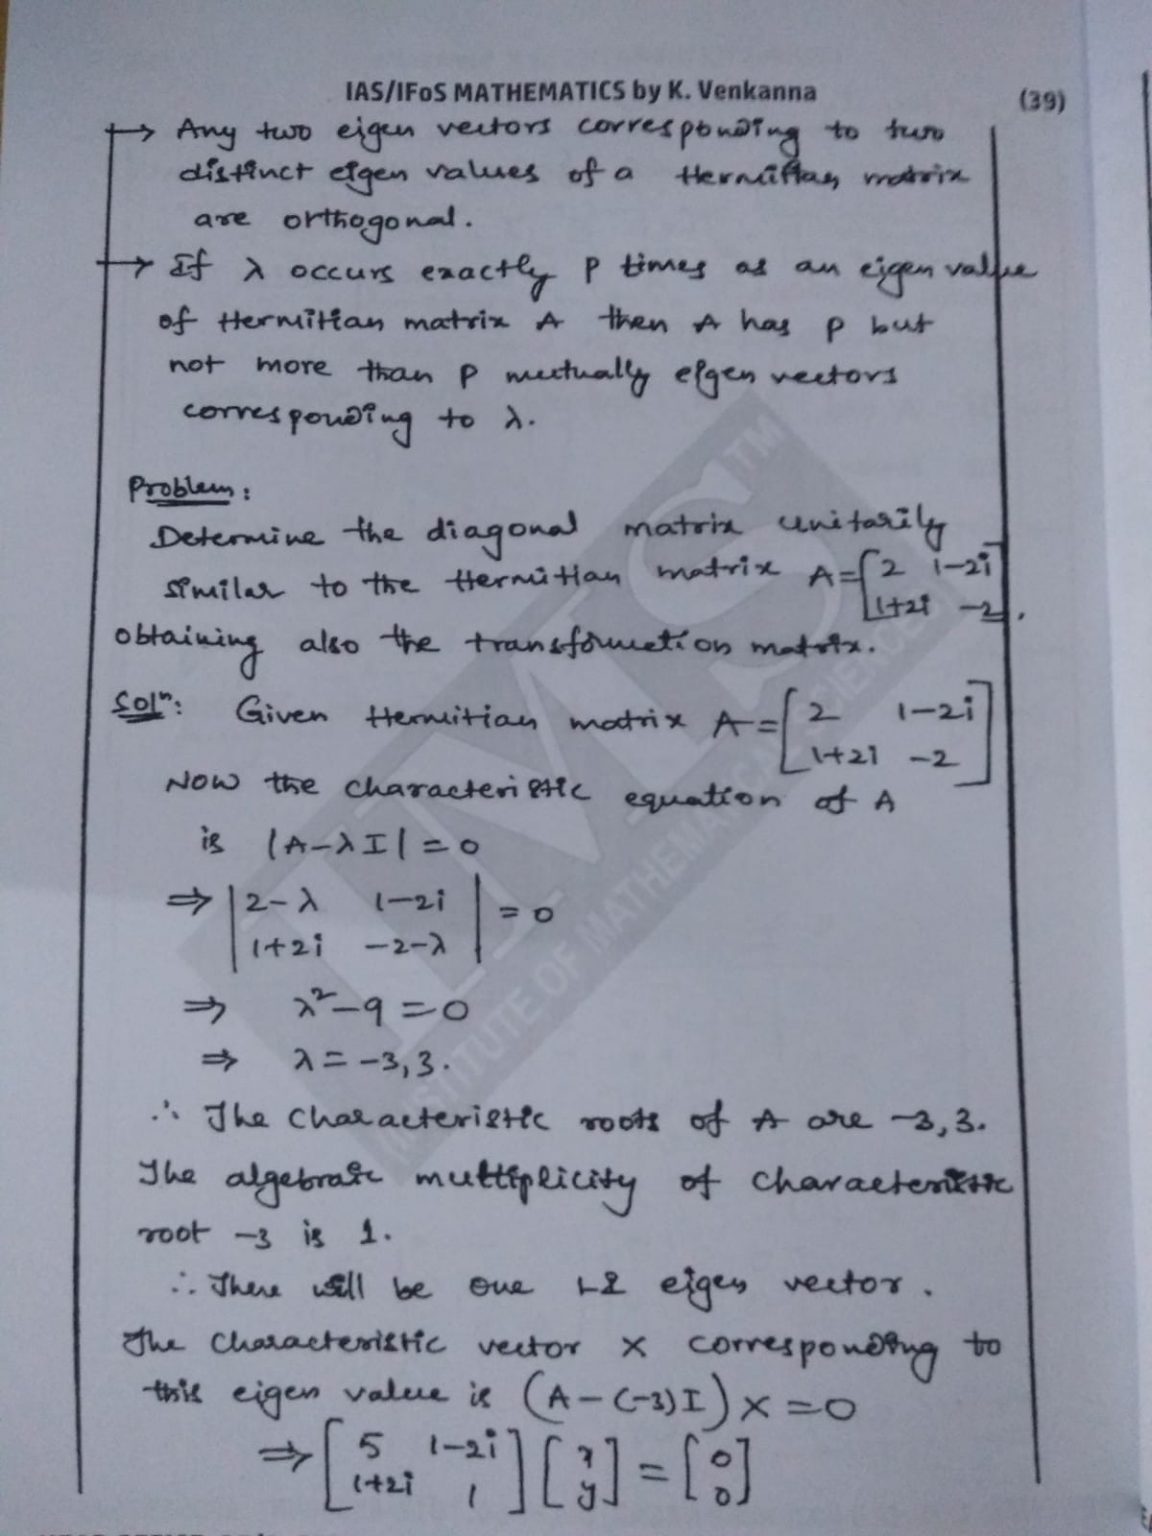 IAS/IFoS MATHEMATICS by K. Venkanna (39)
→ Any two eigen vectors corresponding to two
distinct eigen values of a Hermitian matrix
are orthogonal.
→ If λ occurs exactly p times as an eigen value
of Hermitian matrix A then A has p but
not more than p mutually eigen vectors
corresponding to λ.
Problem:
Determine the diagonal matrix unitarily
similar to the Hermitian matrix A=[2 1-2i
1+2i -2].
obtaining also the transformation matrix.
Solⁿ: Given Hermitian matrix A=[2 1-2i
1+2i -2]
Now the characteristic equation of A
is |A-λI|=0
⇒ |2-λ 1-2i
1+2i -2-λ| =0
⇒ λ²-9=0
⇒ λ=-3,3.
∴ The characteristic roots of A are -3,3.
The algebraic multiplicity of characteristic
root -3 is 1.
∴ There will be one LI eigen vector.
The characteristic vector X corresponding to
this eigen value is (A-(-3)I)X=0
⇒ [5 1-2i
1+2i 1] [x
y] = [0
0]
IMS TM
INSTITUTE OF MATHEMATICAL SCIENCES